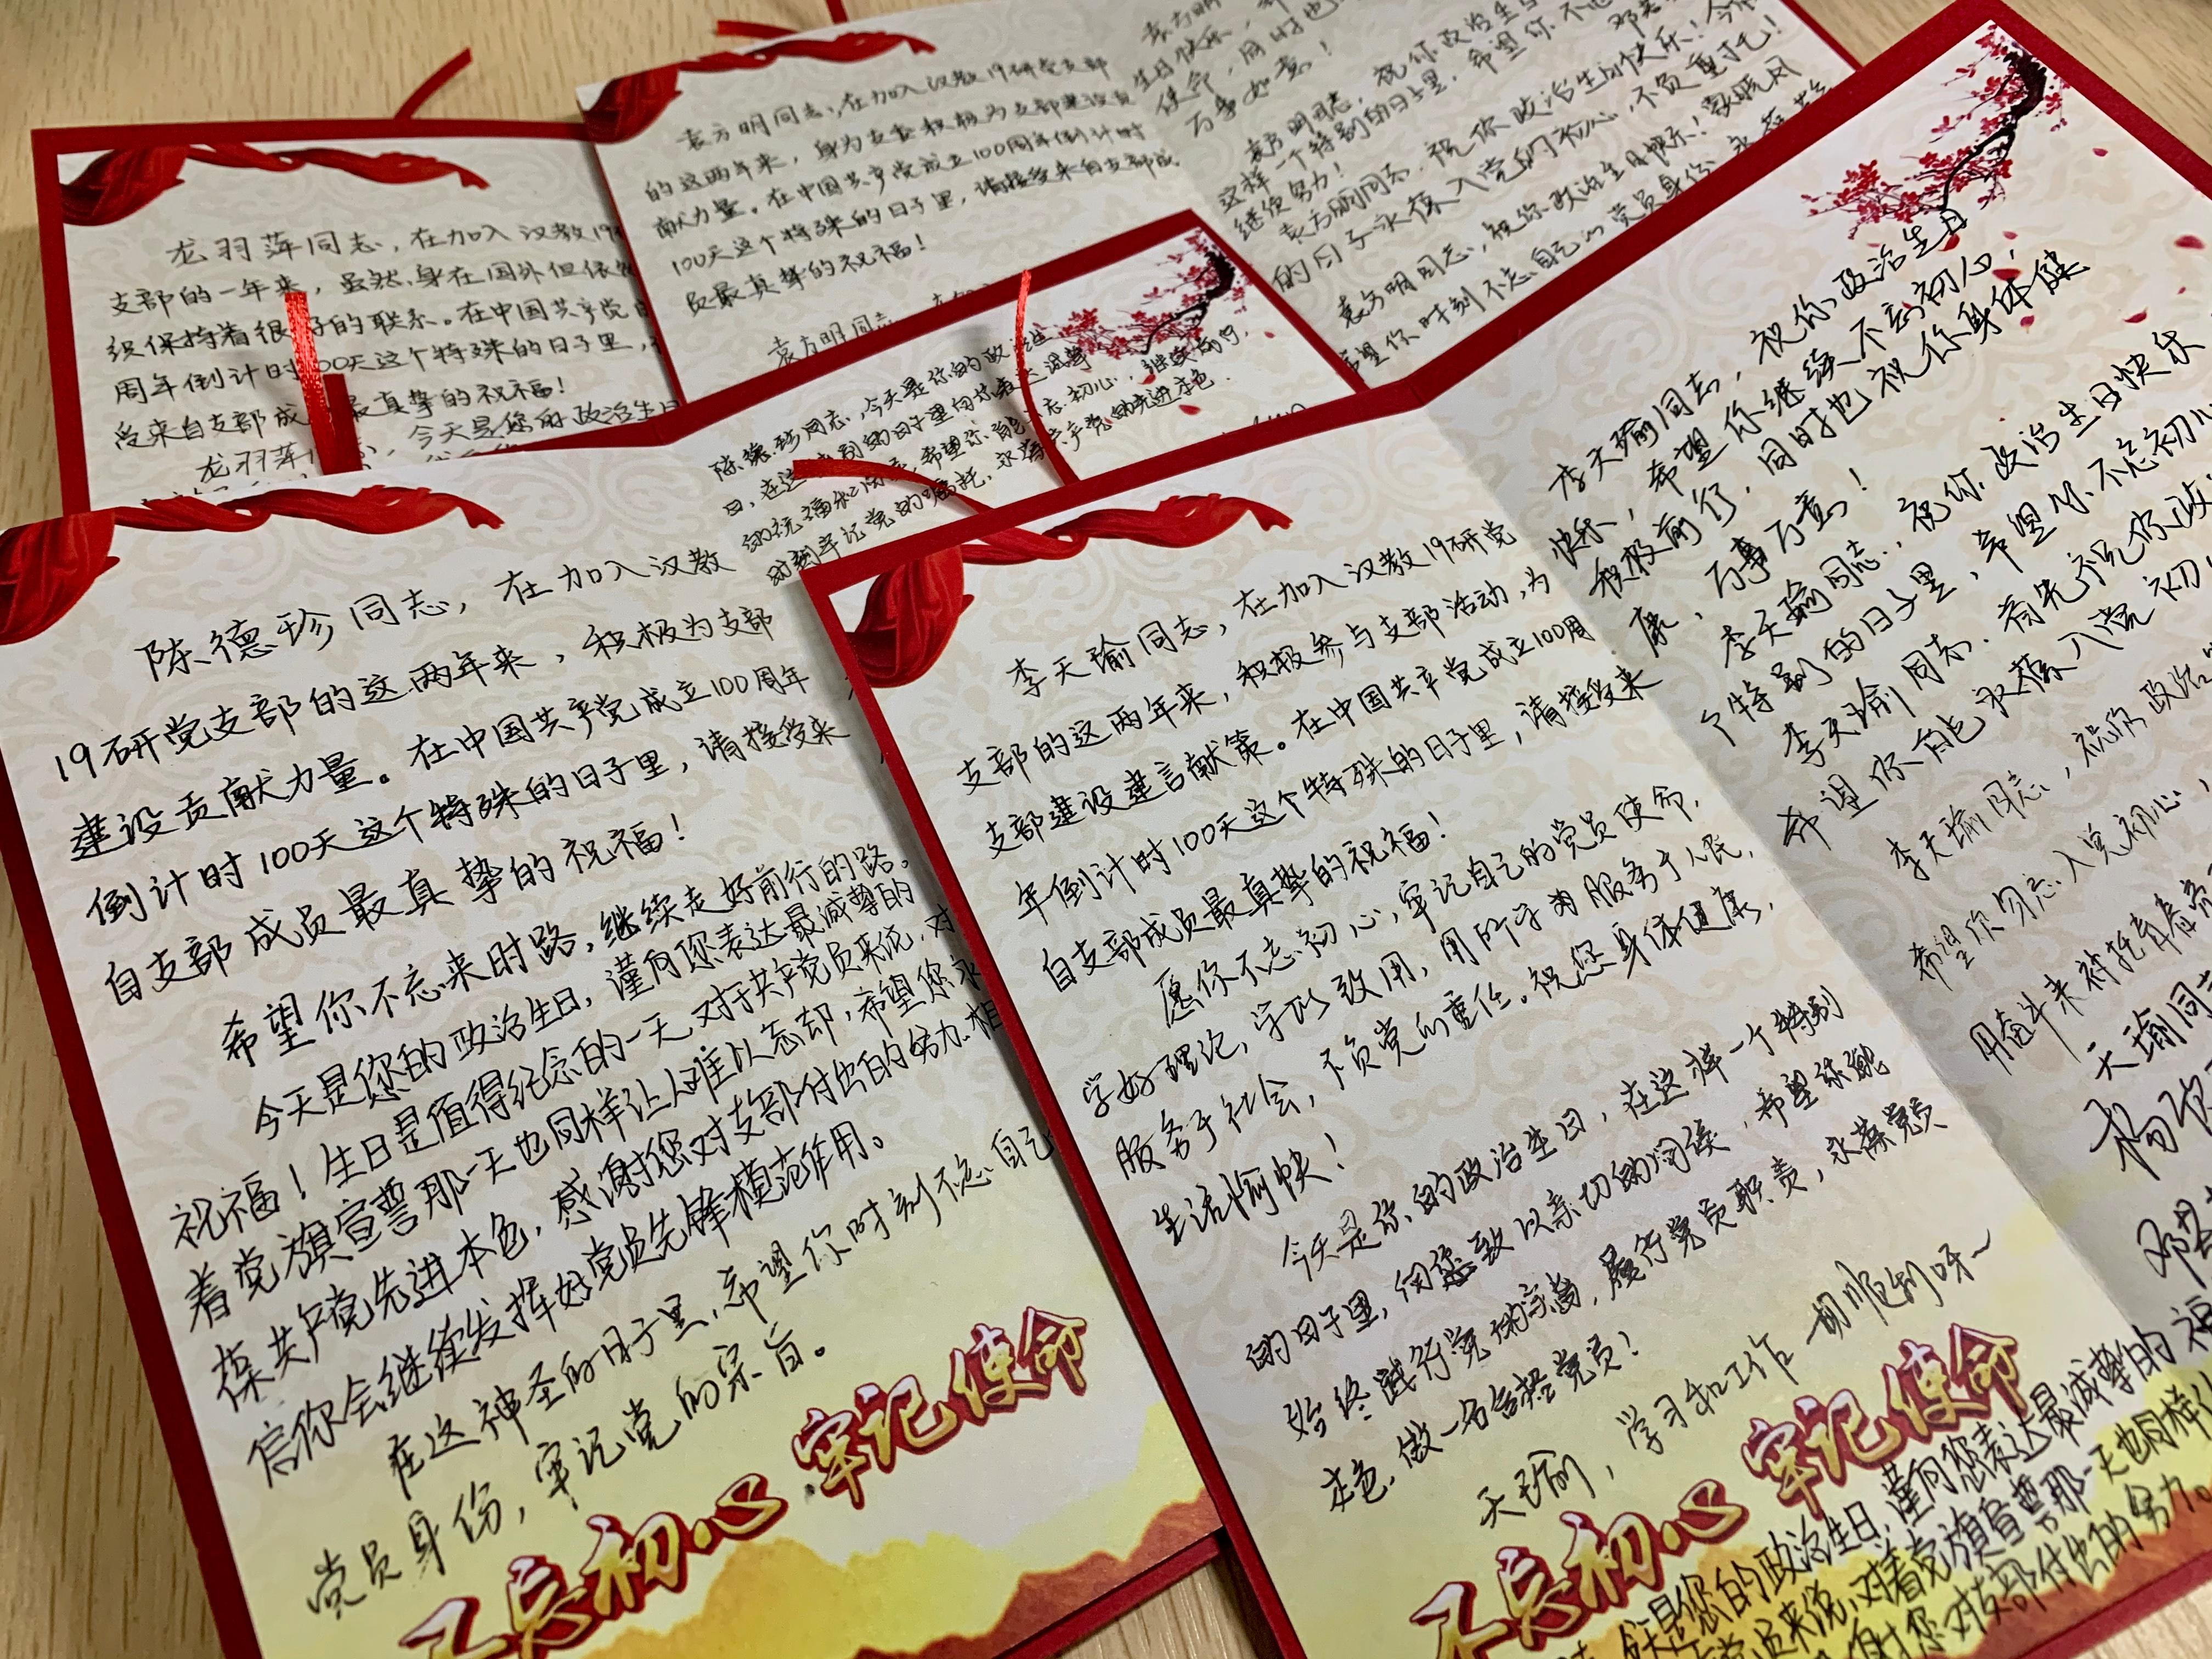 龙羽萍同志,在加入汉教19
支部的一年来,虽然身在国外但依然
织保持着很好的联系。在中国共产党
周年倒计时100天这个特殊的日子里,
受来自支部成员最真挚的祝福!
龙羽萍同志,今天是您的政治生日
袁方明同志,在加入汉教19研党支部
的这两年来,身为支委积极为支部建设贡
献力量。在中国共产党成立100周年倒计时
100天这个特殊的日子里,请接受来自支部成
员最真挚的祝福!
袁方明同志
生日快乐,
使命,同时也
万事如意!
袁方明同志,祝你政治生日
这样一个特别的日子里,希望你不忘
继续努力!
袁方明同志,祝你政治生日快乐!今
的日子永葆入党的初心,不负重托!
袁方明同志,祝你政治生日快乐!
希望你时刻不忘自己的党员身份
陈德珍同志,今天是你的政治生
日,在这
的祝福和问候,希望你能不忘初心,继续前行,
时刻牢记党的嘱托,永葆共产党的先进本色。
陈德珍同志,在加入汉教
19研党支部的这两年来,积极为支部
建设贡献力量。在中国共产党成立100周年
倒计时100天这个特殊的日子里,请接受来
自支部成员最真挚的祝福!
希望你不忘来时路,继续走好前行的路。
今天是您的政治生日,谨向您表达最诚挚的
祝福!生日是值得纪念的一天,对于共产党员来说,对
着党旗宣誓那一天也同样让人难以忘却,希望您永
葆共产党先进本色,感谢您对支部付出的努力,相
信你会继续发挥好党员先锋模范作用。
在这神圣的日子里,希望你时刻不忘自己
党员身份,牢记党的宗旨。
不忘初心 牢记使命
李天瑜同志,在加入汉教19研党
支部的这两年来,积极参与支部活动,为
支部建设建言献策。在中国共产党成立100周
年倒计时100天这个特殊的日子里,请接受来
自支部成员最真挚的祝福!
愿你不忘初心,牢记自己的党员使命,
学好理论,学以致用,用所学为服务于人民,
服务于社会,不负党的重任。祝您身体健康,
生活愉快!
今天是你的政治生日,在这样一个特别
的日子里,向您致以亲切的问候,希望你能
始终践行党的宗旨,履行党员职责,永葆党员
本色,做一名合格党员!
天瑜,学习和工作一切顺利呀~
不忘初心 牢记使命
今天是您的政治生日,谨向您表达最诚挚的祝
党员来说,对着党旗宣誓那一天也同样
谢您对支部付出的努力。
李天瑜同志,祝你政治生日
快乐,希望你继续不忘初心,
积极前行,同时也祝你身体健
康,万事如意!
李天瑜同志,祝你政治生日快乐
个特别的日子里,希望你不忘初心
李天瑜同志,首先祝你政
希望你能永葆入党初
李天瑜同志,祝你政治
希望你勿忘入党初心,
用奋斗来衬托青春
天瑜同志